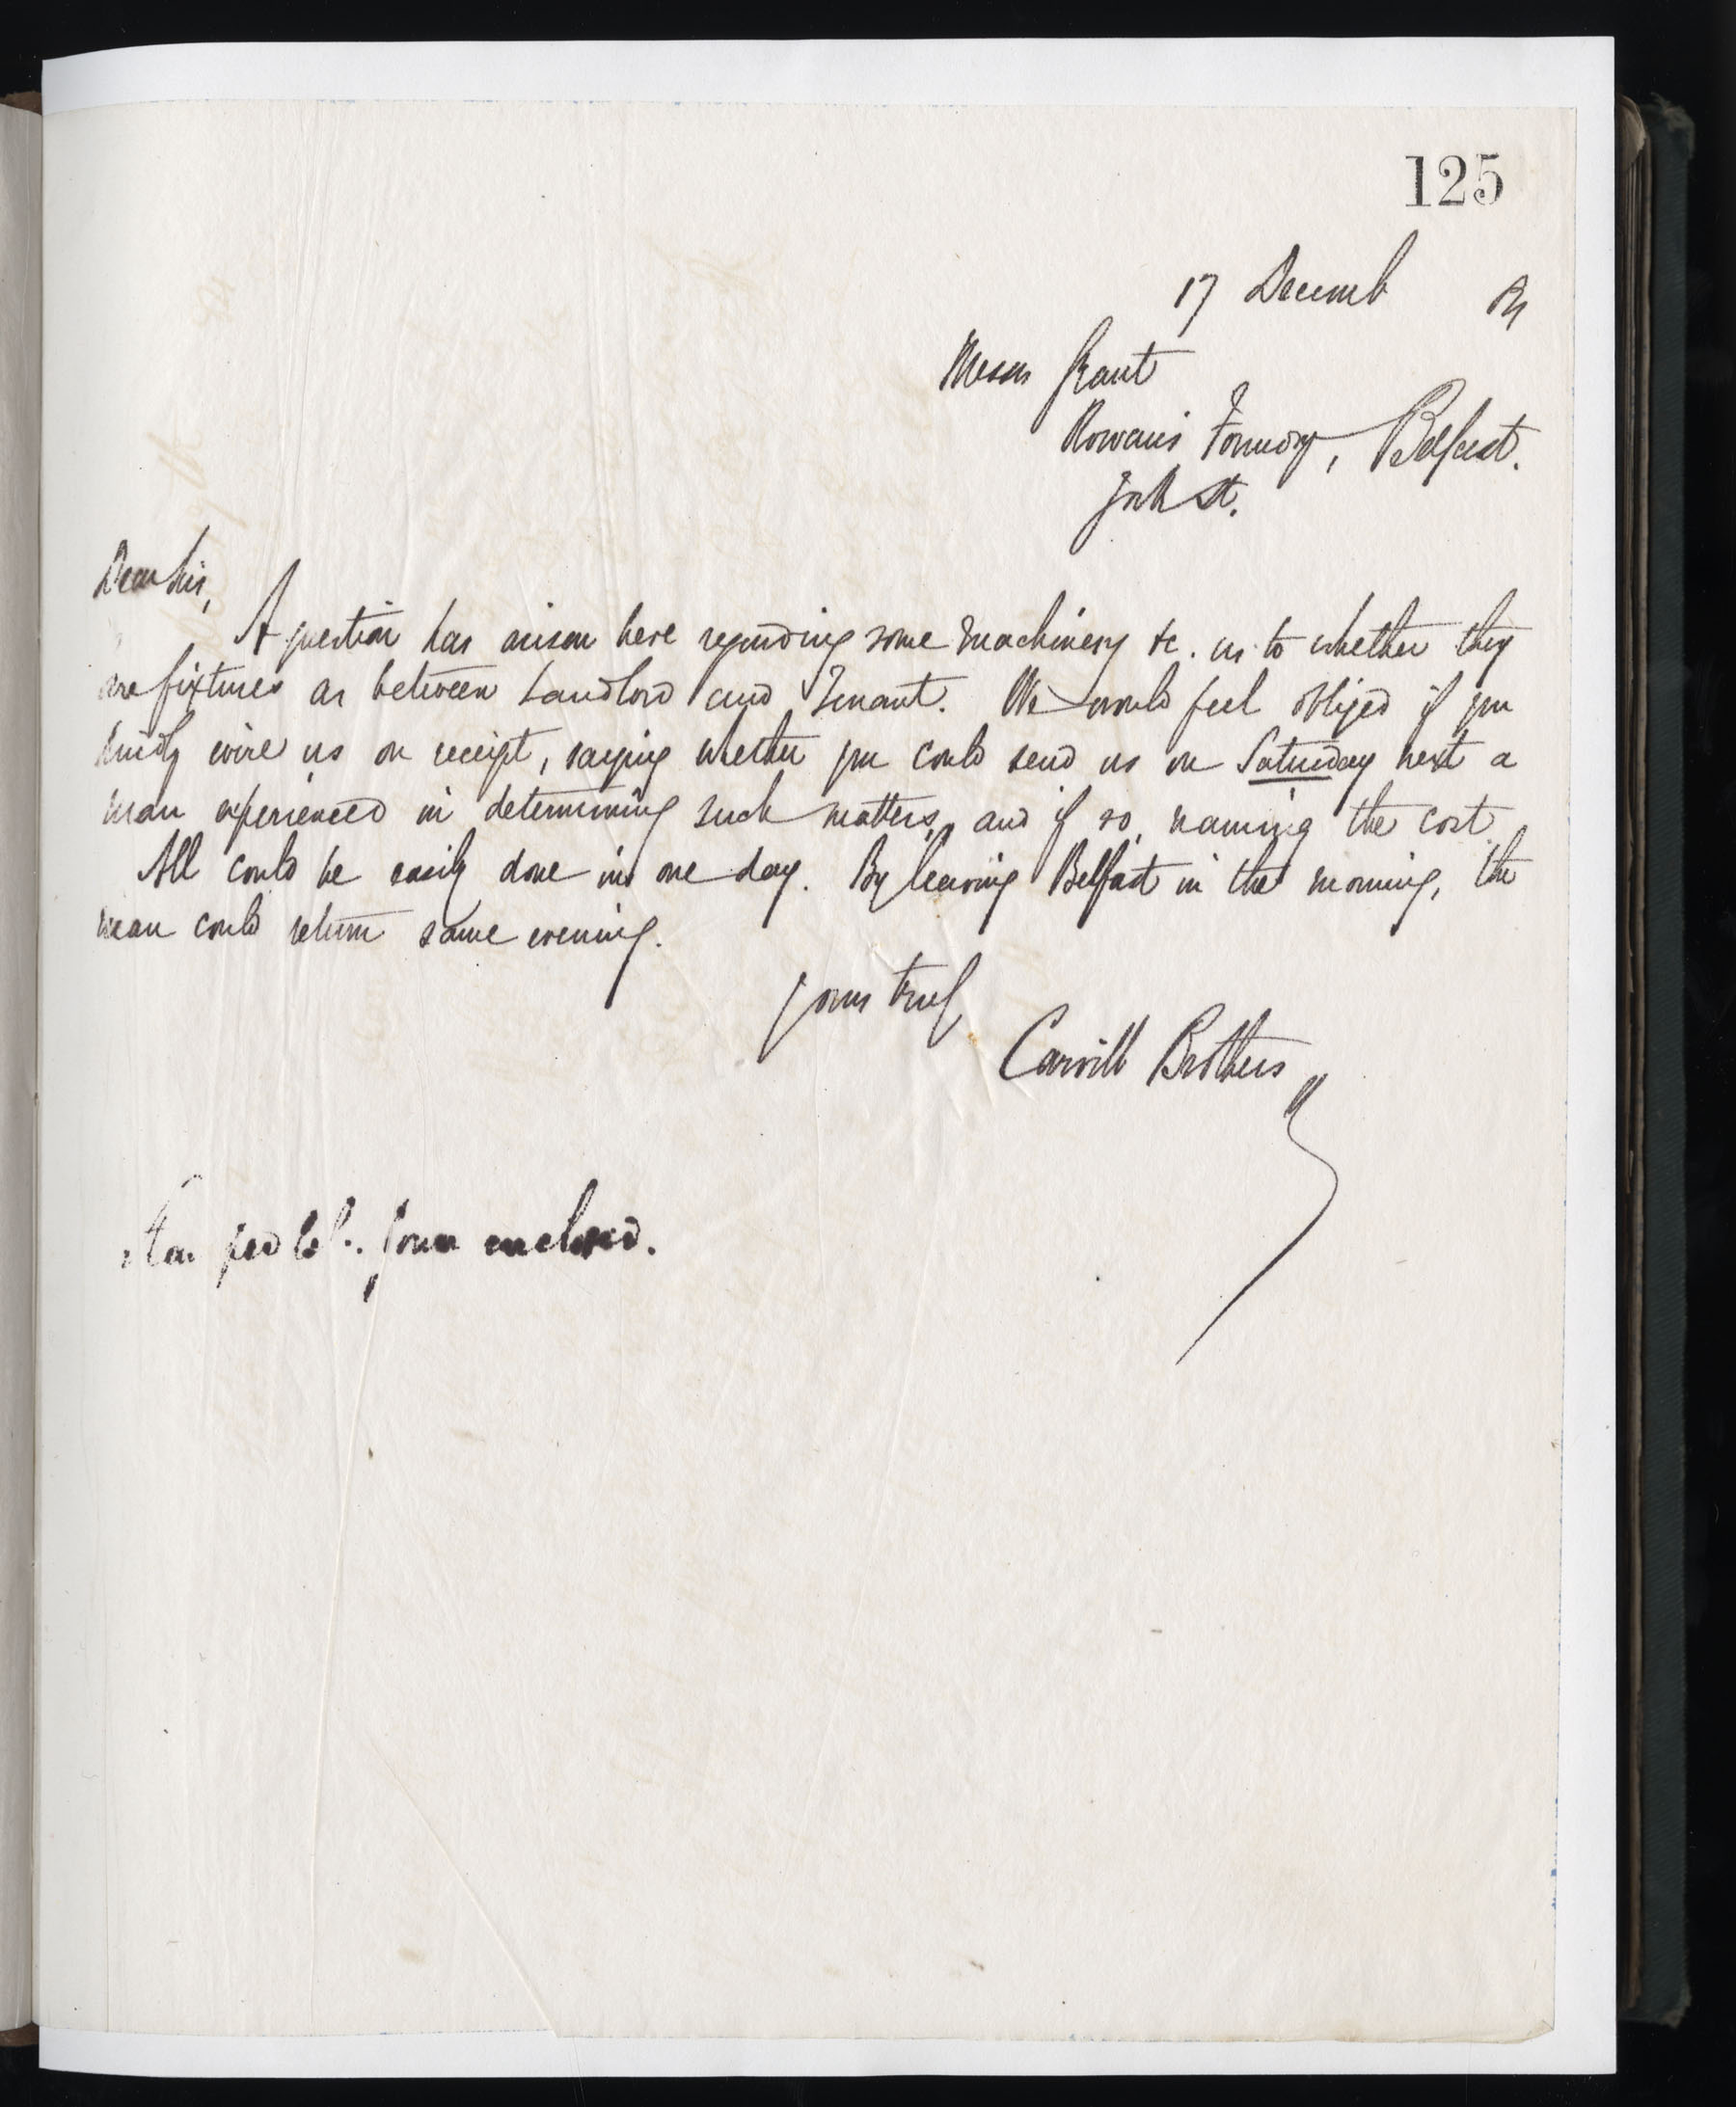 125
17 Decemb
Messrs Grant
Rowan's Foundry, Belfast.
York St.
Dear Sir,
A question has arisen here regarding some machinery &c. as to whether they
are fixtures as between Landlord and Tenant. We would feel obliged if you
kindly wire us on receipt, saying whether you could send us on Saturday next a
man experienced in determining such matters, and if so, naming the cost.
All could be easily done in one day. By leaving Belfast in the morning, the
man could return same evening.
Yours truly
Carvill Brothers
form enclosed.